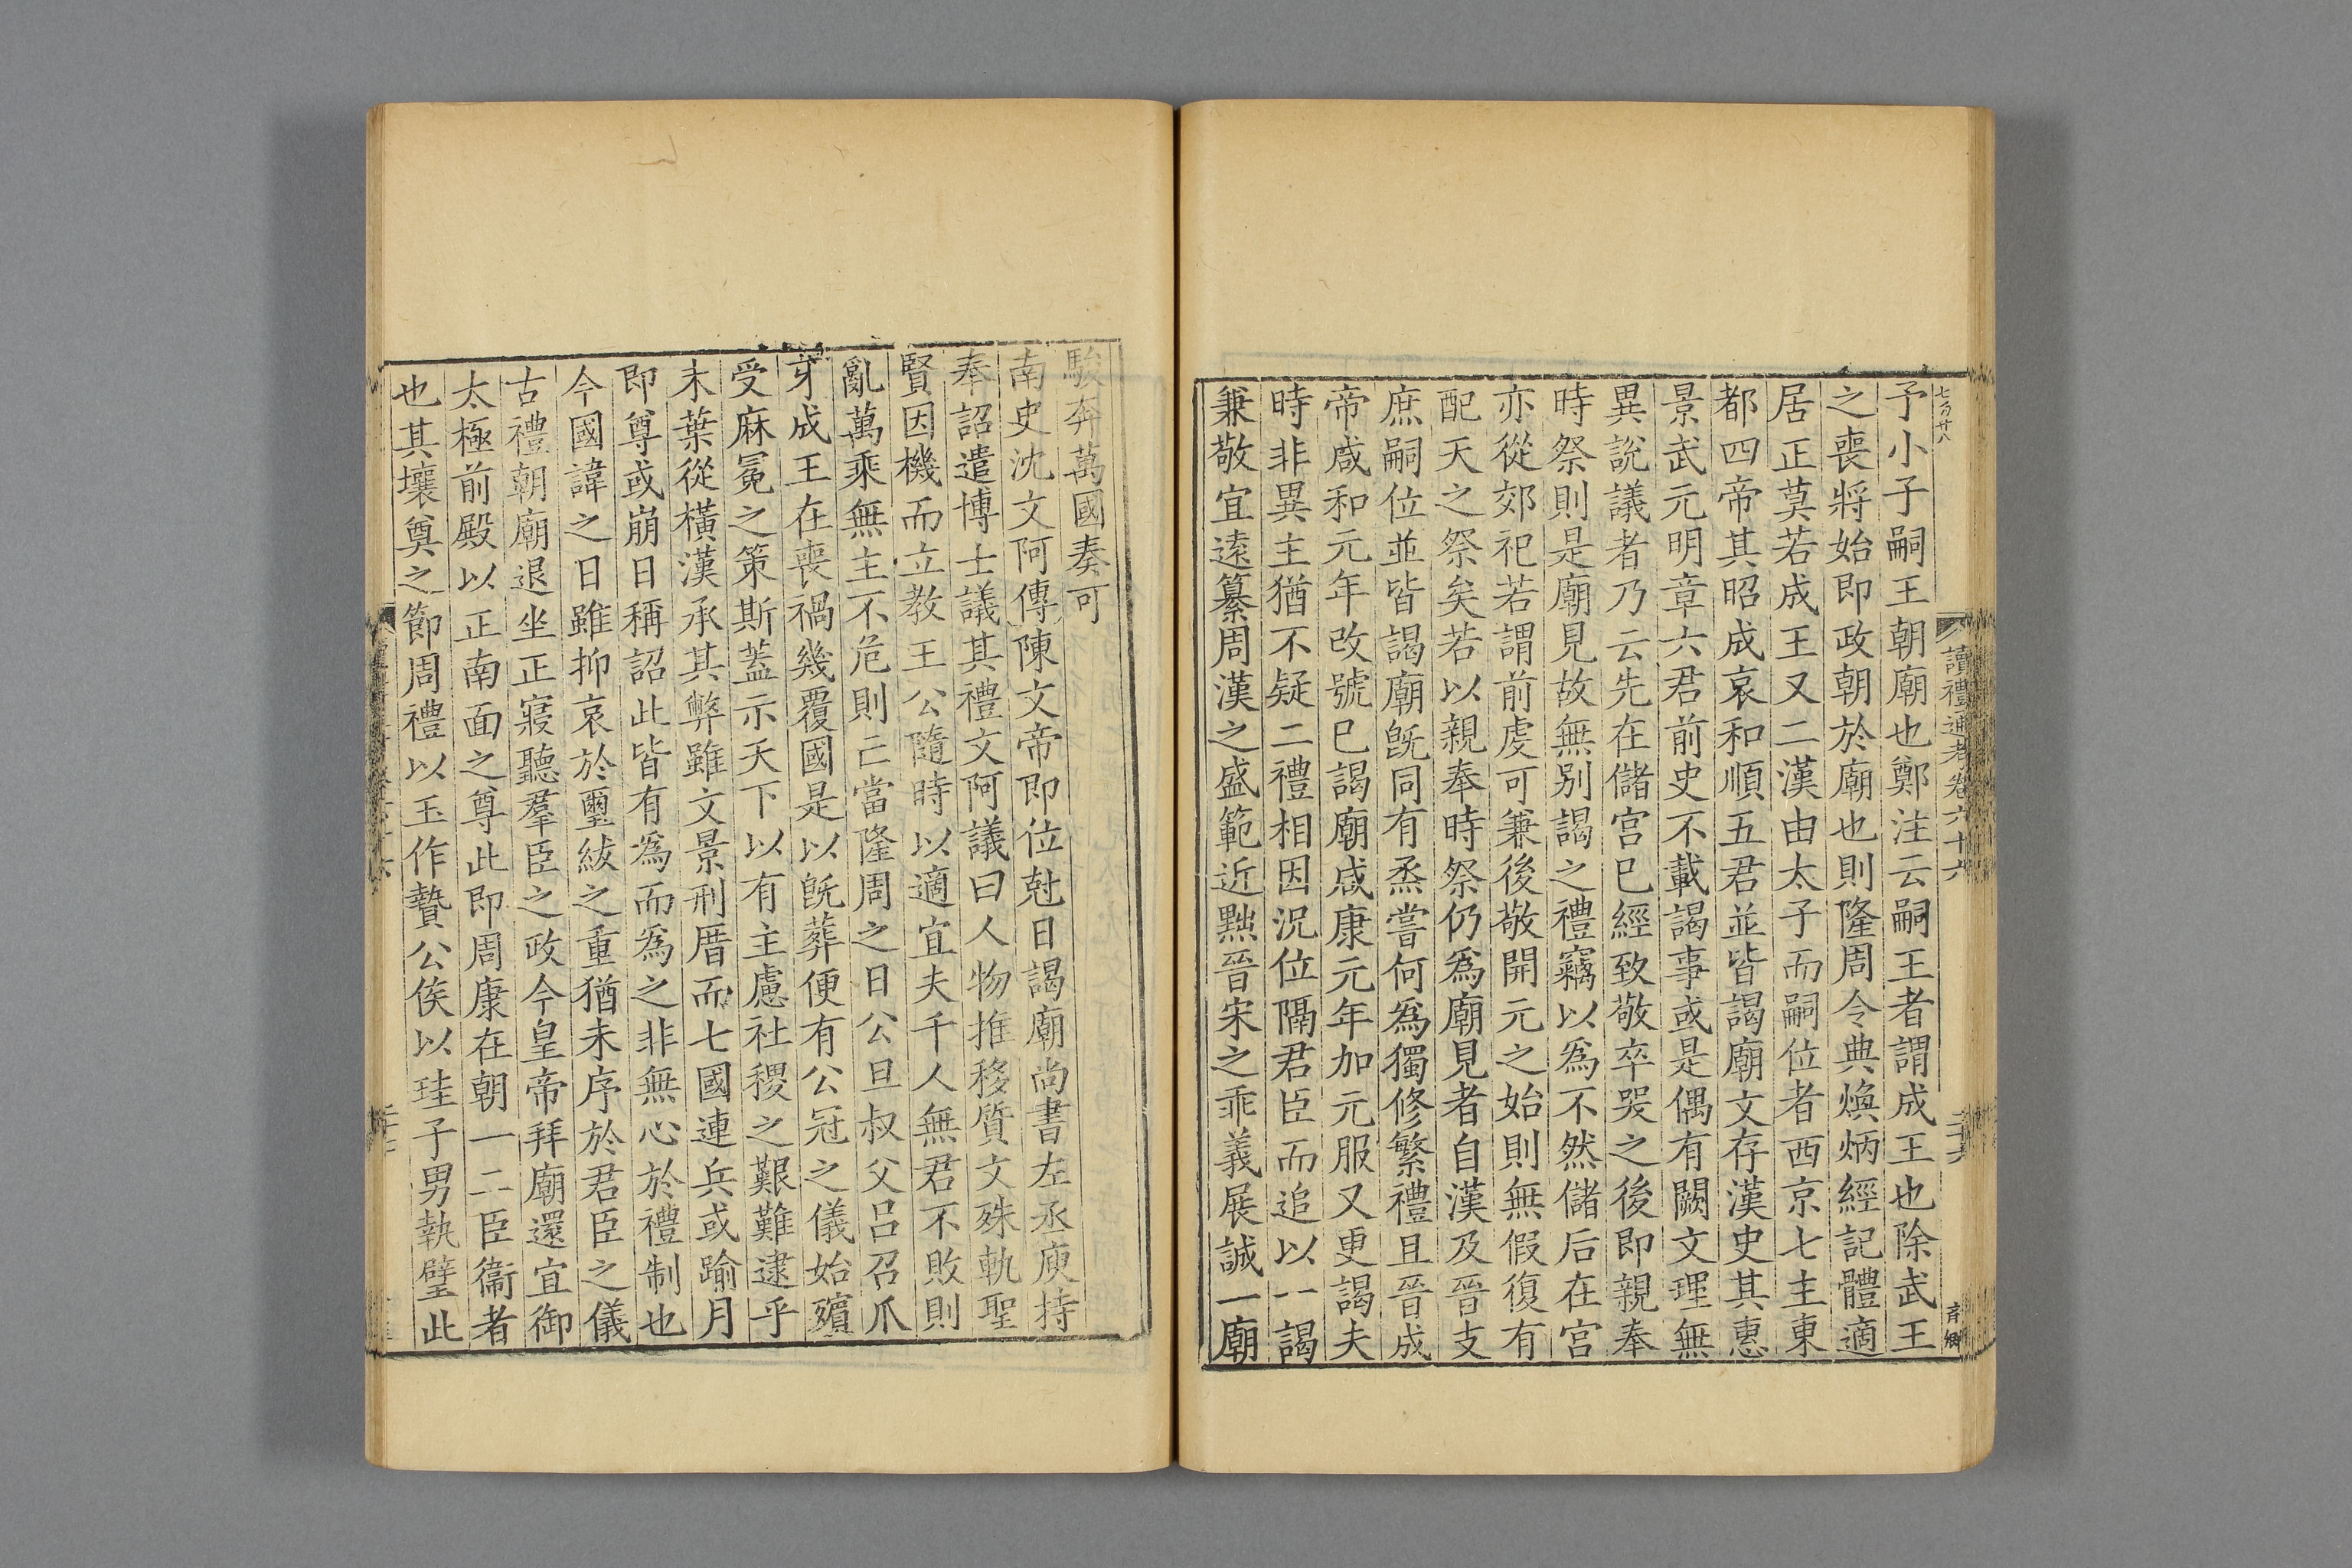 七百廿八
讀禮通考卷六十六
二十六
予小子嗣王朝廟也鄭注云嗣王者謂成王也除武王
之喪將始即政朝於廟也則隆周令典煥炳經記體適
居正莫若成王又二漢由太子而嗣位者西京七主東
都四帝其昭成哀和順五君並皆謁廟文存漢史其惠
景武元明章六君前史不載謁事或是偶有闕文理無
異說議者乃云先在儲宮已經致敬卒哭之後即親奉
時祭則是廟見故無別謁之禮竊以爲不然儲后在宮
亦從郊祀若謂前虔可兼後敬開元之始則無假復有
配天之祭矣若以親奉時祭仍爲廟見者自漢及晉支
庶嗣位並皆謁廟旣同有烝嘗何爲獨修繁禮且晉成
帝咸和元年改號已謁廟咸康元年加元服又更謁夫
時非異主猶不疑二禮相因況位隔君臣而追以一謁
兼敬宜遠纂周漢之盛範近黜晉宋之乖義展誠一廟
駿奔萬國奏可
南史沈文阿傳陳文帝即位尅日謁廟尚書左丞庾持
奉詔遣博士議其禮文阿議曰人物推移質文殊軌聖
賢因機而立教王公隨時以適宜夫千人無君不敗則
亂萬乘無主不危則亡當隆周之日公旦叔父呂召爪
牙成王在喪禍幾覆國是以旣葬便有公冠之儀始殯
受麻冕之策斯蓋示天下以有主慮社稷之艱難逮乎
末葉從橫漢承其弊雖文景刑厝而七國連兵或踰月
即尊或崩日稱詔此皆有爲而爲之非無心於禮制也
今國諱之日雖抑哀於璽紱之重猶未序於君臣之儀
古禮朝廟退坐正寢聽羣臣之政今皇帝拜廟還宜御
太極前殿以正南面之尊此即周康在朝一二臣衞者
也其壤奠之節周禮以玉作贄公侯以珪子男執璧此